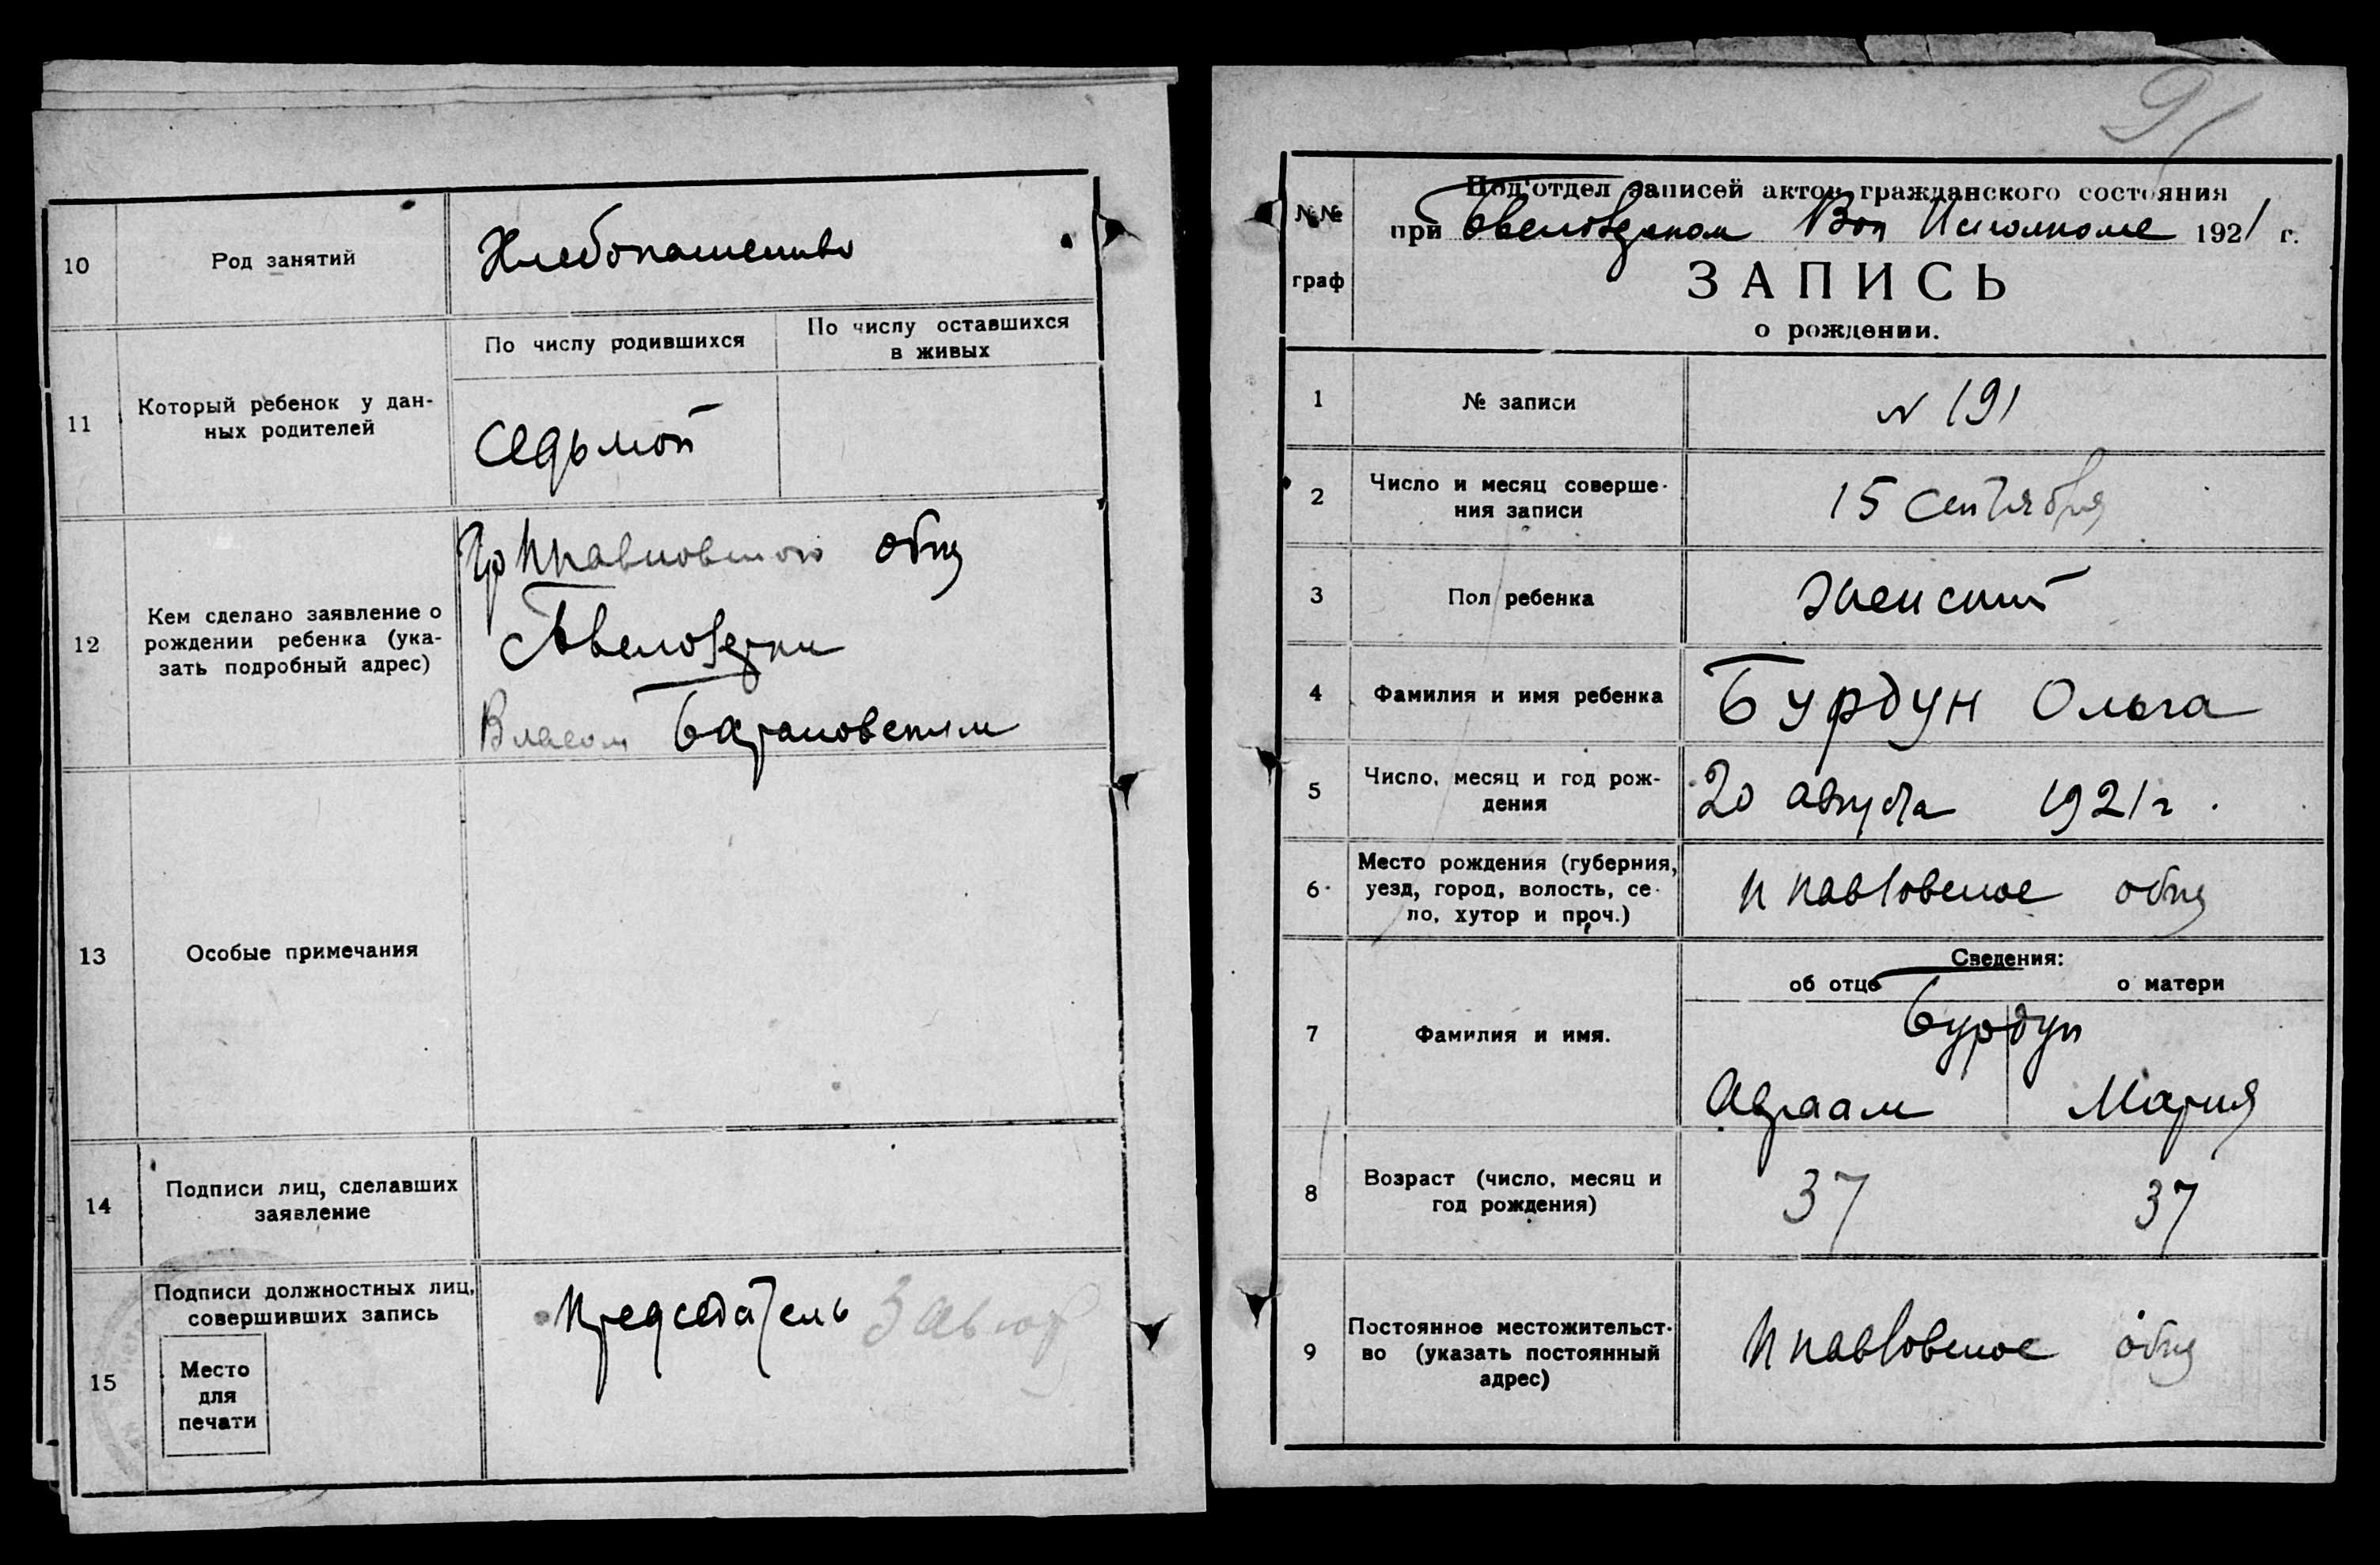 10
Род занятий
Хлебопашество
11
Который ребенок у дан-
ных родителей
По числу родившихся
По числу оставшихся
в живых
Седьмой
12
Кем сделано заявление о
рождении ребенка (ука-
зать подробный адрес)
Гр
общ
Власом Барановским
13
Особые примечания
14
Подписи лиц, сделавших
заявление
15
Подписи должностных лиц,
совершивших запись
Место
для
печати
Председатель
91
№№
граф
Под'отдел записей актов гражданского состояния
при Вол Исполкоме 1921 г.
ЗАПИСЬ
о рождении.
1
№ записи
N 191
2
Число и месяц соверше-
ния записи
15 Сентября
3
Пол ребенка
Женский
4
Фамилия и имя ребенка
Бурдун Ольга
5
Число, месяц и год рож-
дения
20 августа 1921 г.
6
Место рождения (губерния,
уезд, город, волость, се-
ло, хутор и проч.)
Н павловское общ
7
Фамилия и имя.
Сведения:
об отце
о матери
Бурдун
Мария
8
Возраст (число, месяц и
год рождения)
37
37
9
Постоянное местожительст-
во (указать постоянный
адрес)
Н павловское общ